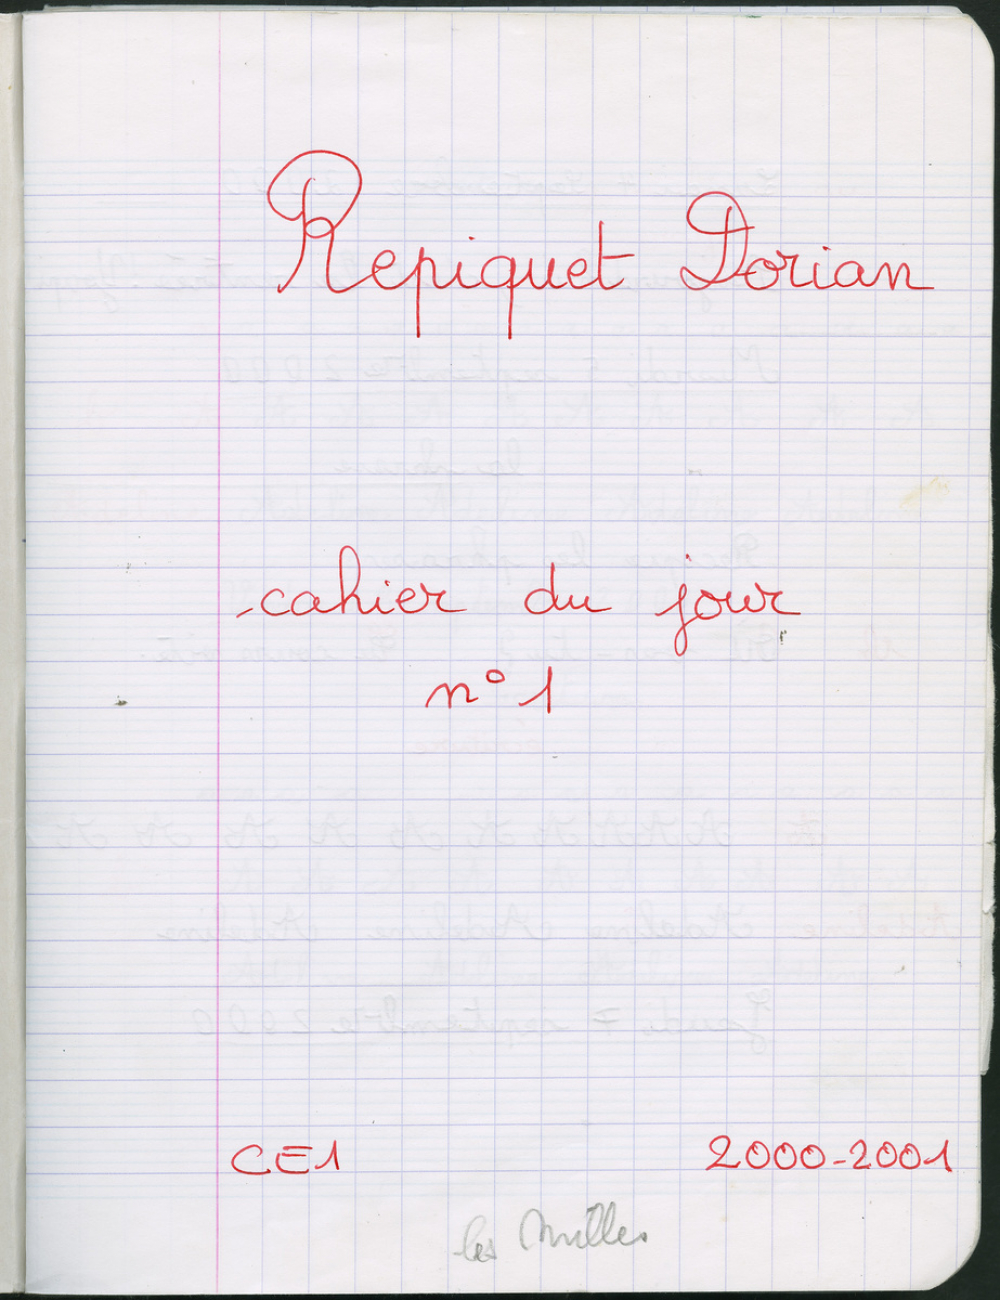 Repiquet Dorian
cahier du jour
n° 1
CE1 2000-2001
les Milles